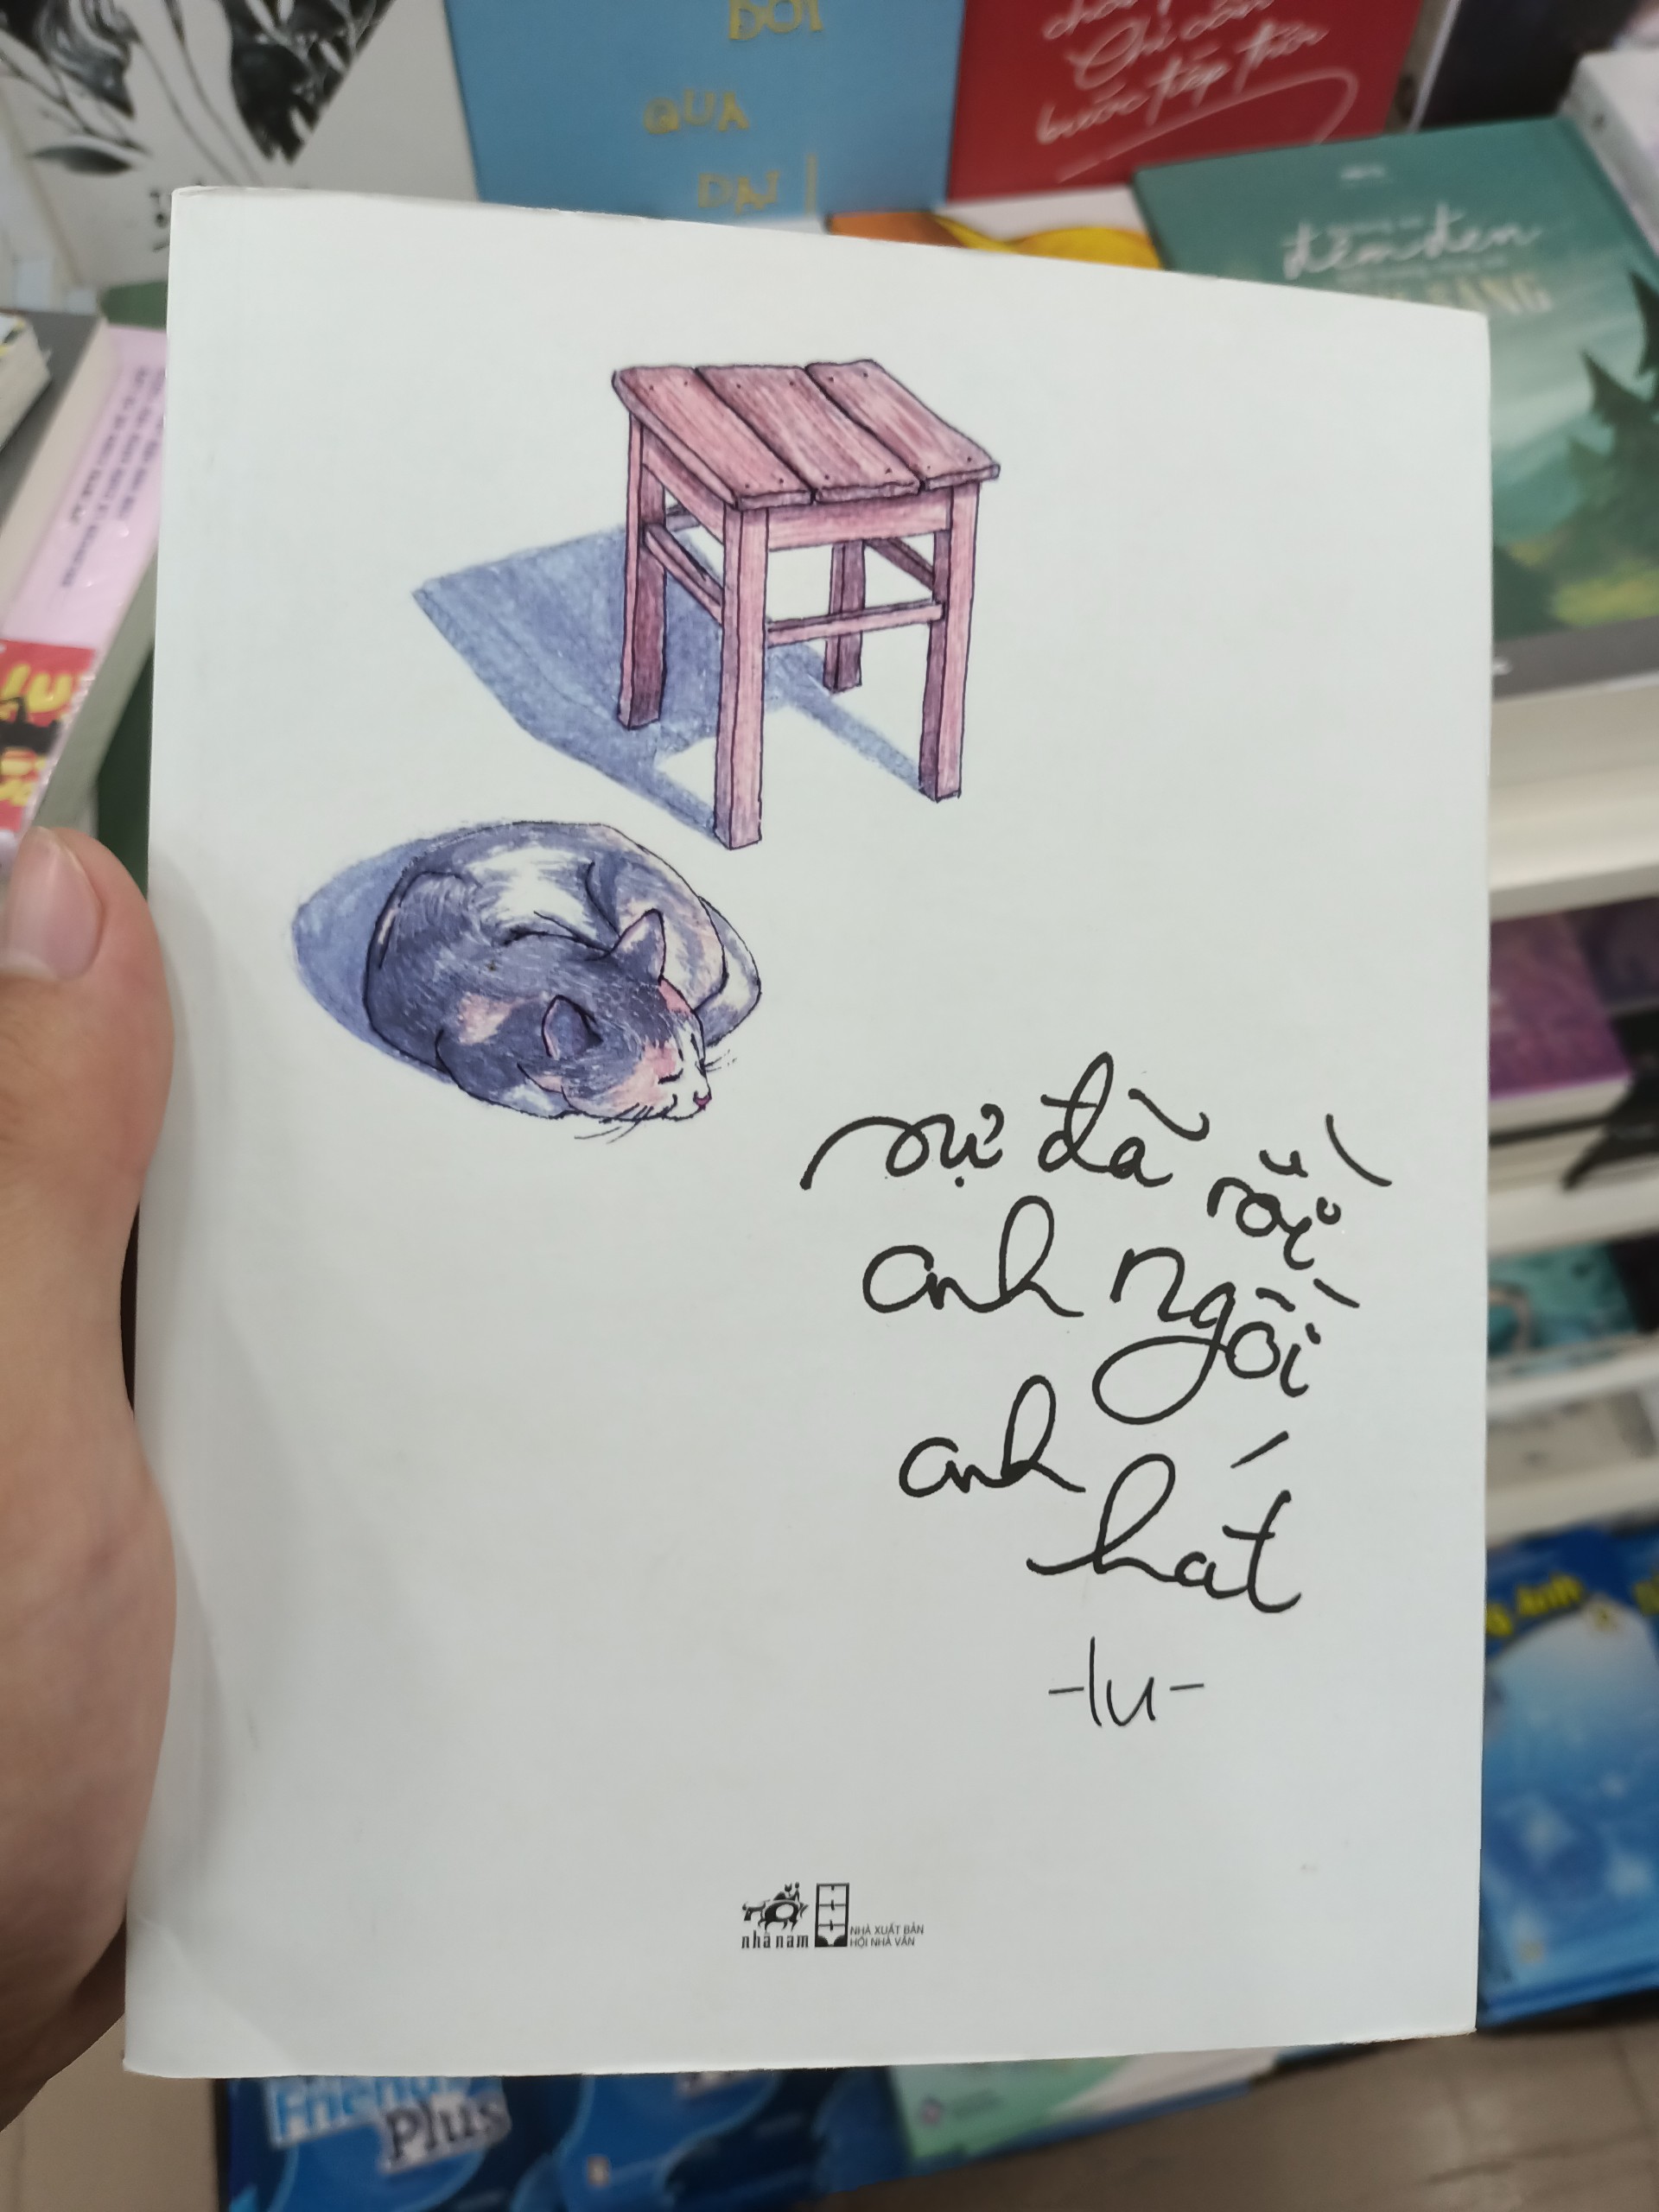 ĐỜI
QUA
DẠI
Chỉ cần
bước tiếp thôi
đêm đen
sự đã rồi
anh ngồi
anh
hát
-lu-
nhã nam
NHÀ XUẤT BẢN
HỘI NHÀ VĂN
Friends
Plus